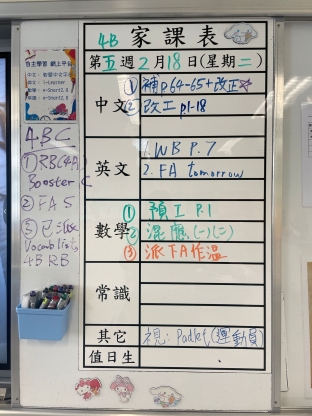 自主學習 網上平台
4B 家課表
第五週 2月18日(星期二)
中文
① 補 p.64-65 + 改正
② 改工 p.1-18
英文
1. WB P.7
2. FA tomorrow
數學
① 預工 P.1
② 混應 (一)(二)
③ 派 FA 作溫
常識
其它
視: Padlet (運動員)
值日生
4BC
① RBC(4A)
Booster
② FA 5
③
Vocab list
4B RB